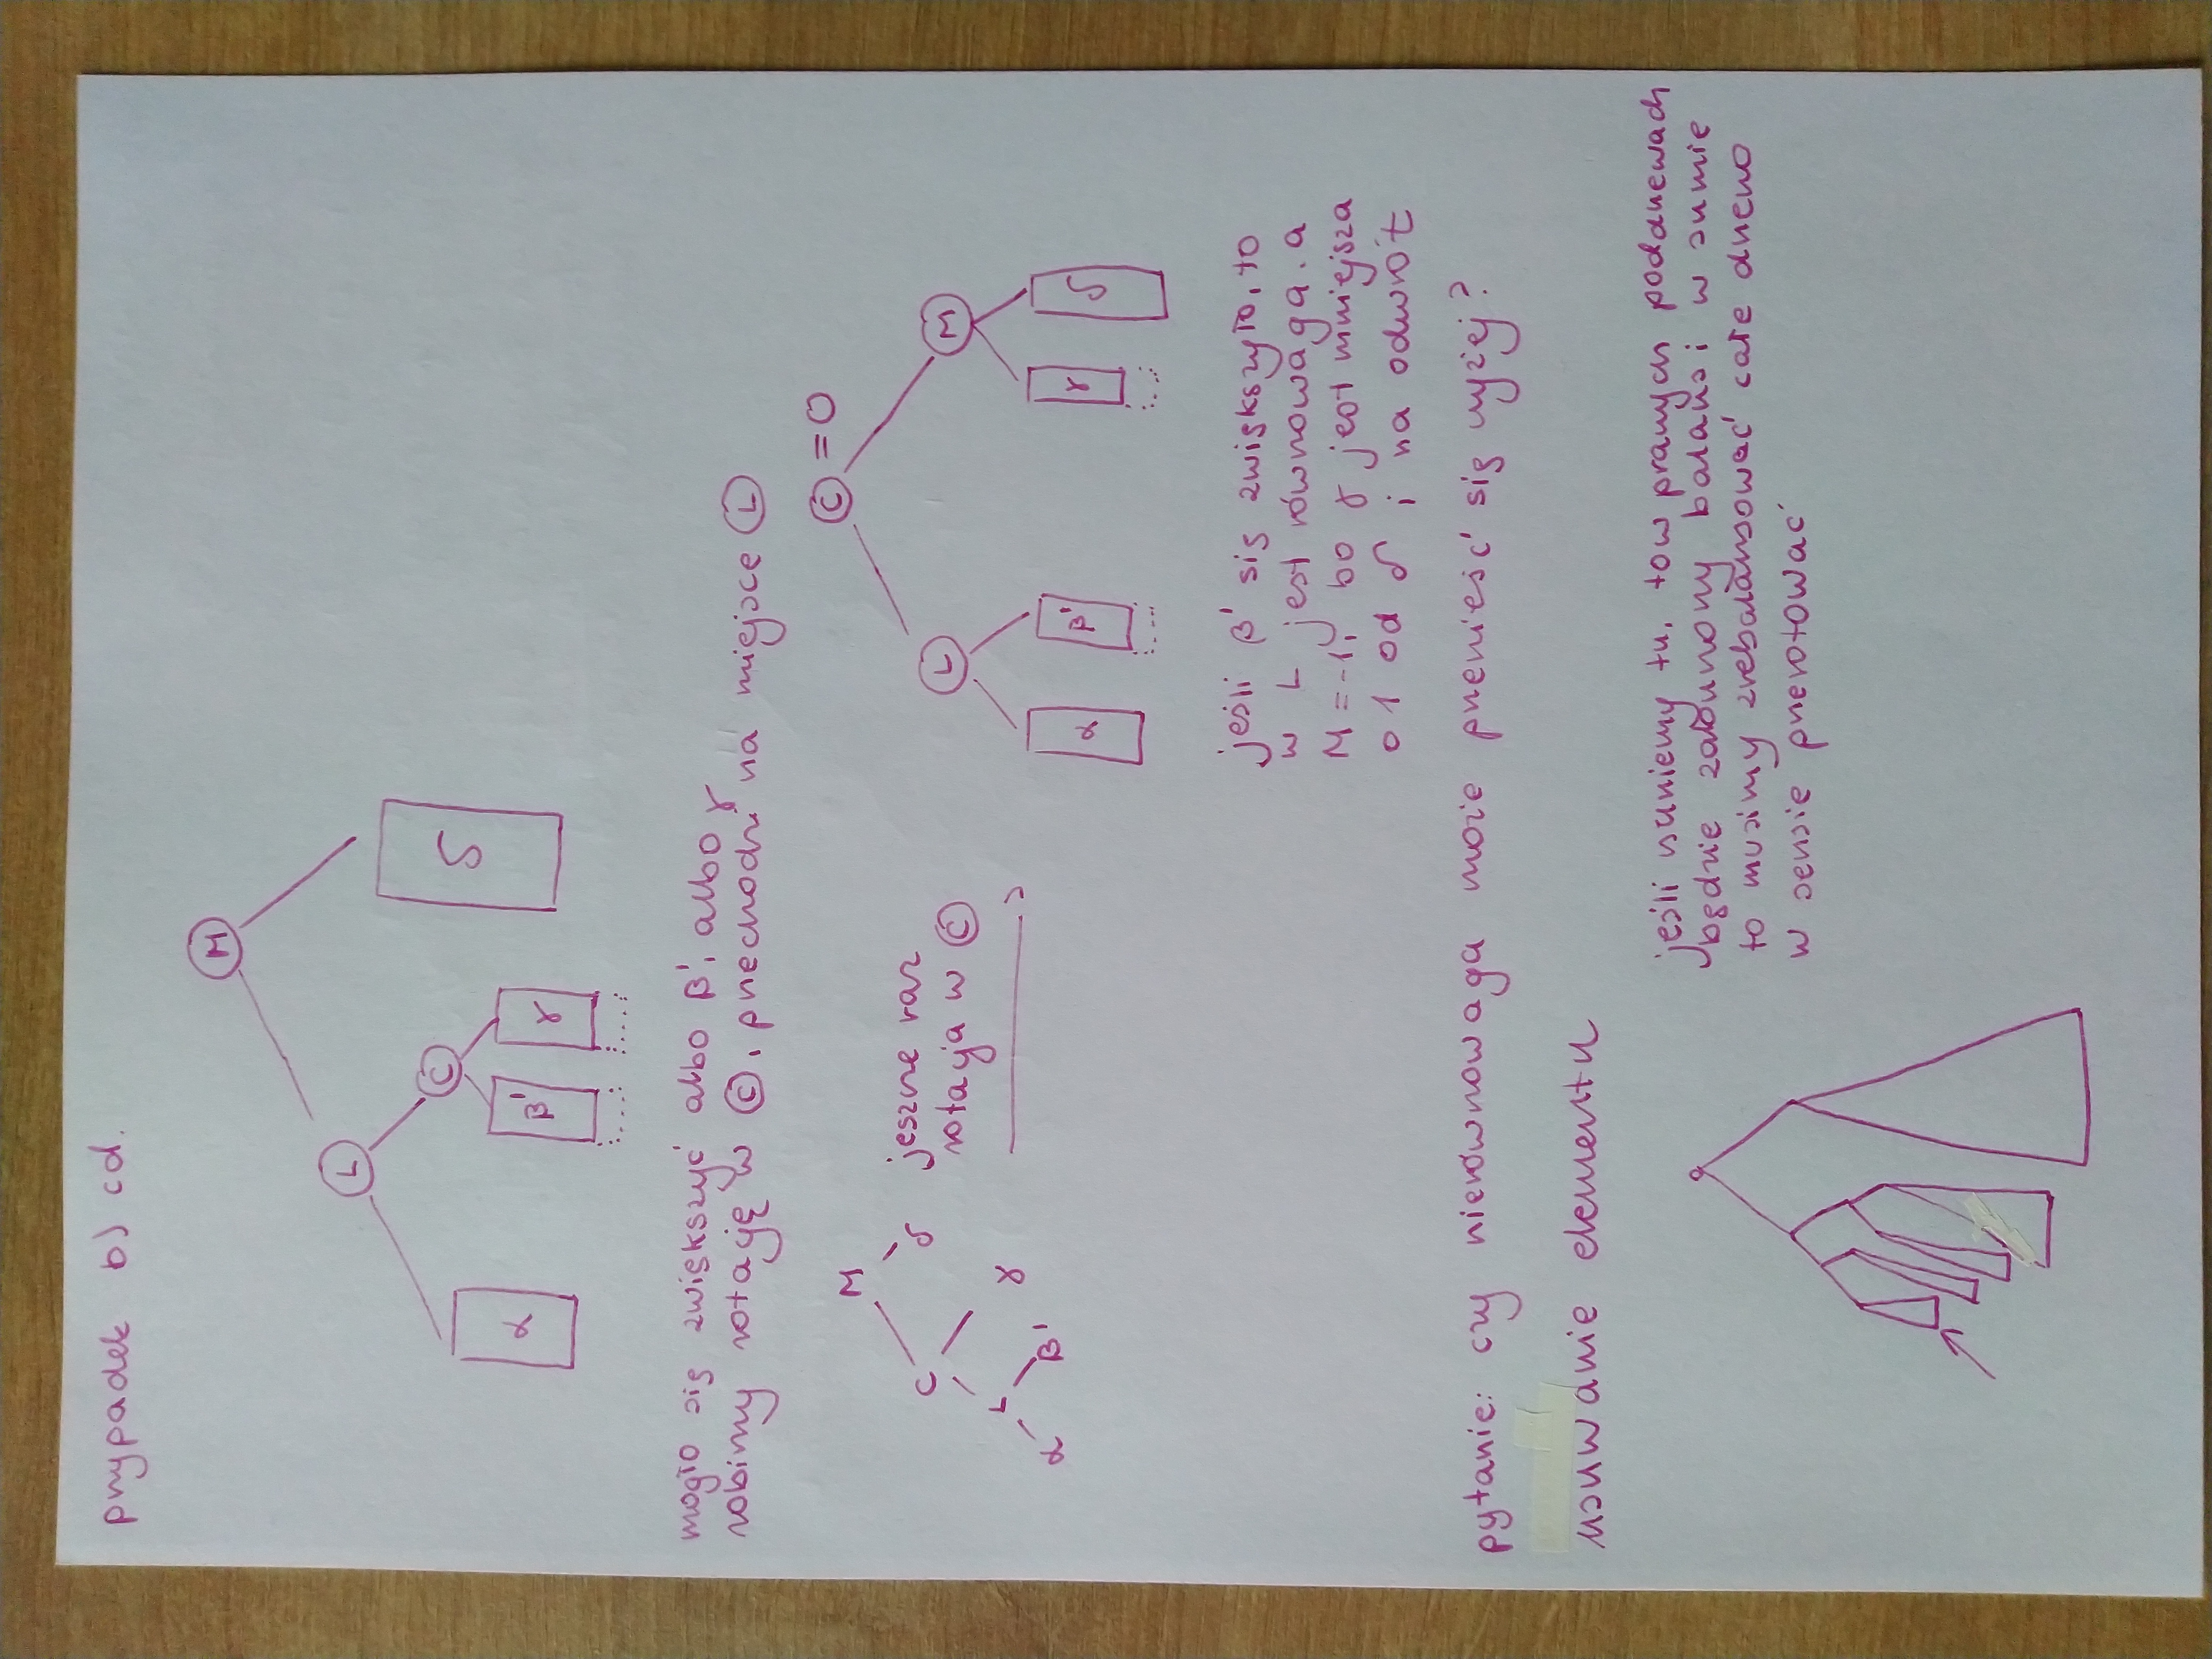 przypadek b) cd.
M
L
C
α
β'
γ
δ
mogło się zwiększyć albo β', albo γ
robimy rotację w C, przechodzi na miejsce L
M
C
δ
L
γ
α
β'
jeszcze raz
rotacja w C
C = 0
L
M
α
β'
γ
δ
jeśli β' się zwiększyło, to
w L jest równowaga, a
M = -1, bo γ jest mniejsza
o 1 od δ i na odwrót
pytanie: czy nierównowaga może przenieść się wyżej?
usuwanie elementu
jeśli usuniemy tu, to w prawych poddrzewach
będzie zaburzony balans i w sumie
to musimy zrebalansować całe drzewo
w sensie przerotować